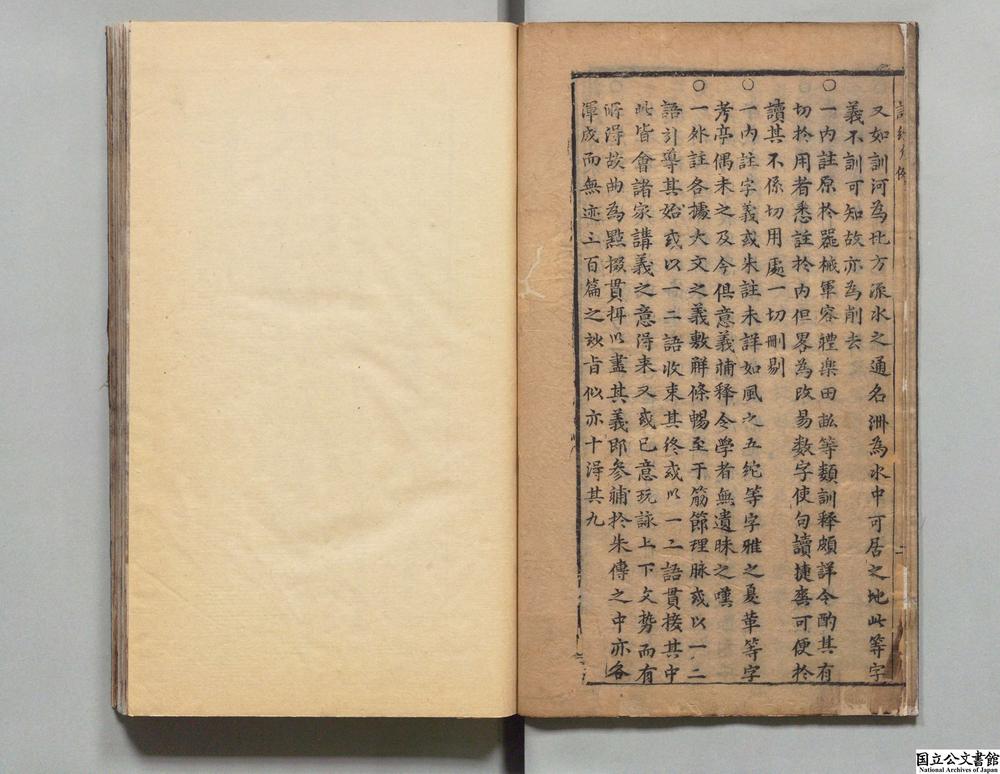 又如訓河為北方流水之通名洲為水中可居之地此等字
義不訓可知故亦為削去
○一內註原於器械軍容禮樂田畝等類訓釋頗詳今酌其有
切於用者悉註於內但畧為改易數字使句讀捷爽可便於
讀其不係切用處一切刪剔
○一內註字義或朱註未詳如風之五紽等字雅之戛革等字
考亭偶未之及今俱意義補釋令學者無遺昧之嘆
○一外註各據大文之義敷解條暢至于筋節理脉或以一二
語引導其始或以一二語收束其終或以一二語貫接其中
此皆會諸家講義之意得來又或已意玩詠上下文勢而有
所得故曲為點掇貫珥以盡其義即參補於朱傳之中亦各
渾成而無迹三百篇之妙旨似亦十得其九
二
国立公文書館
National Archives of Japan